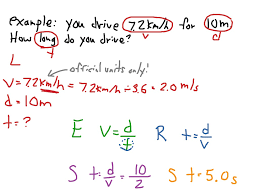 example: you drive 7.2km/h for 10m
v d
How long do you drive?
t
L official units only!
v=7.2km/h = 7.2km/h ÷ 3.6 = 2.0 m/s
d=10m
t=?
E v=d/t R t=d/v
S t=d/v=10/2 S t=5.0s